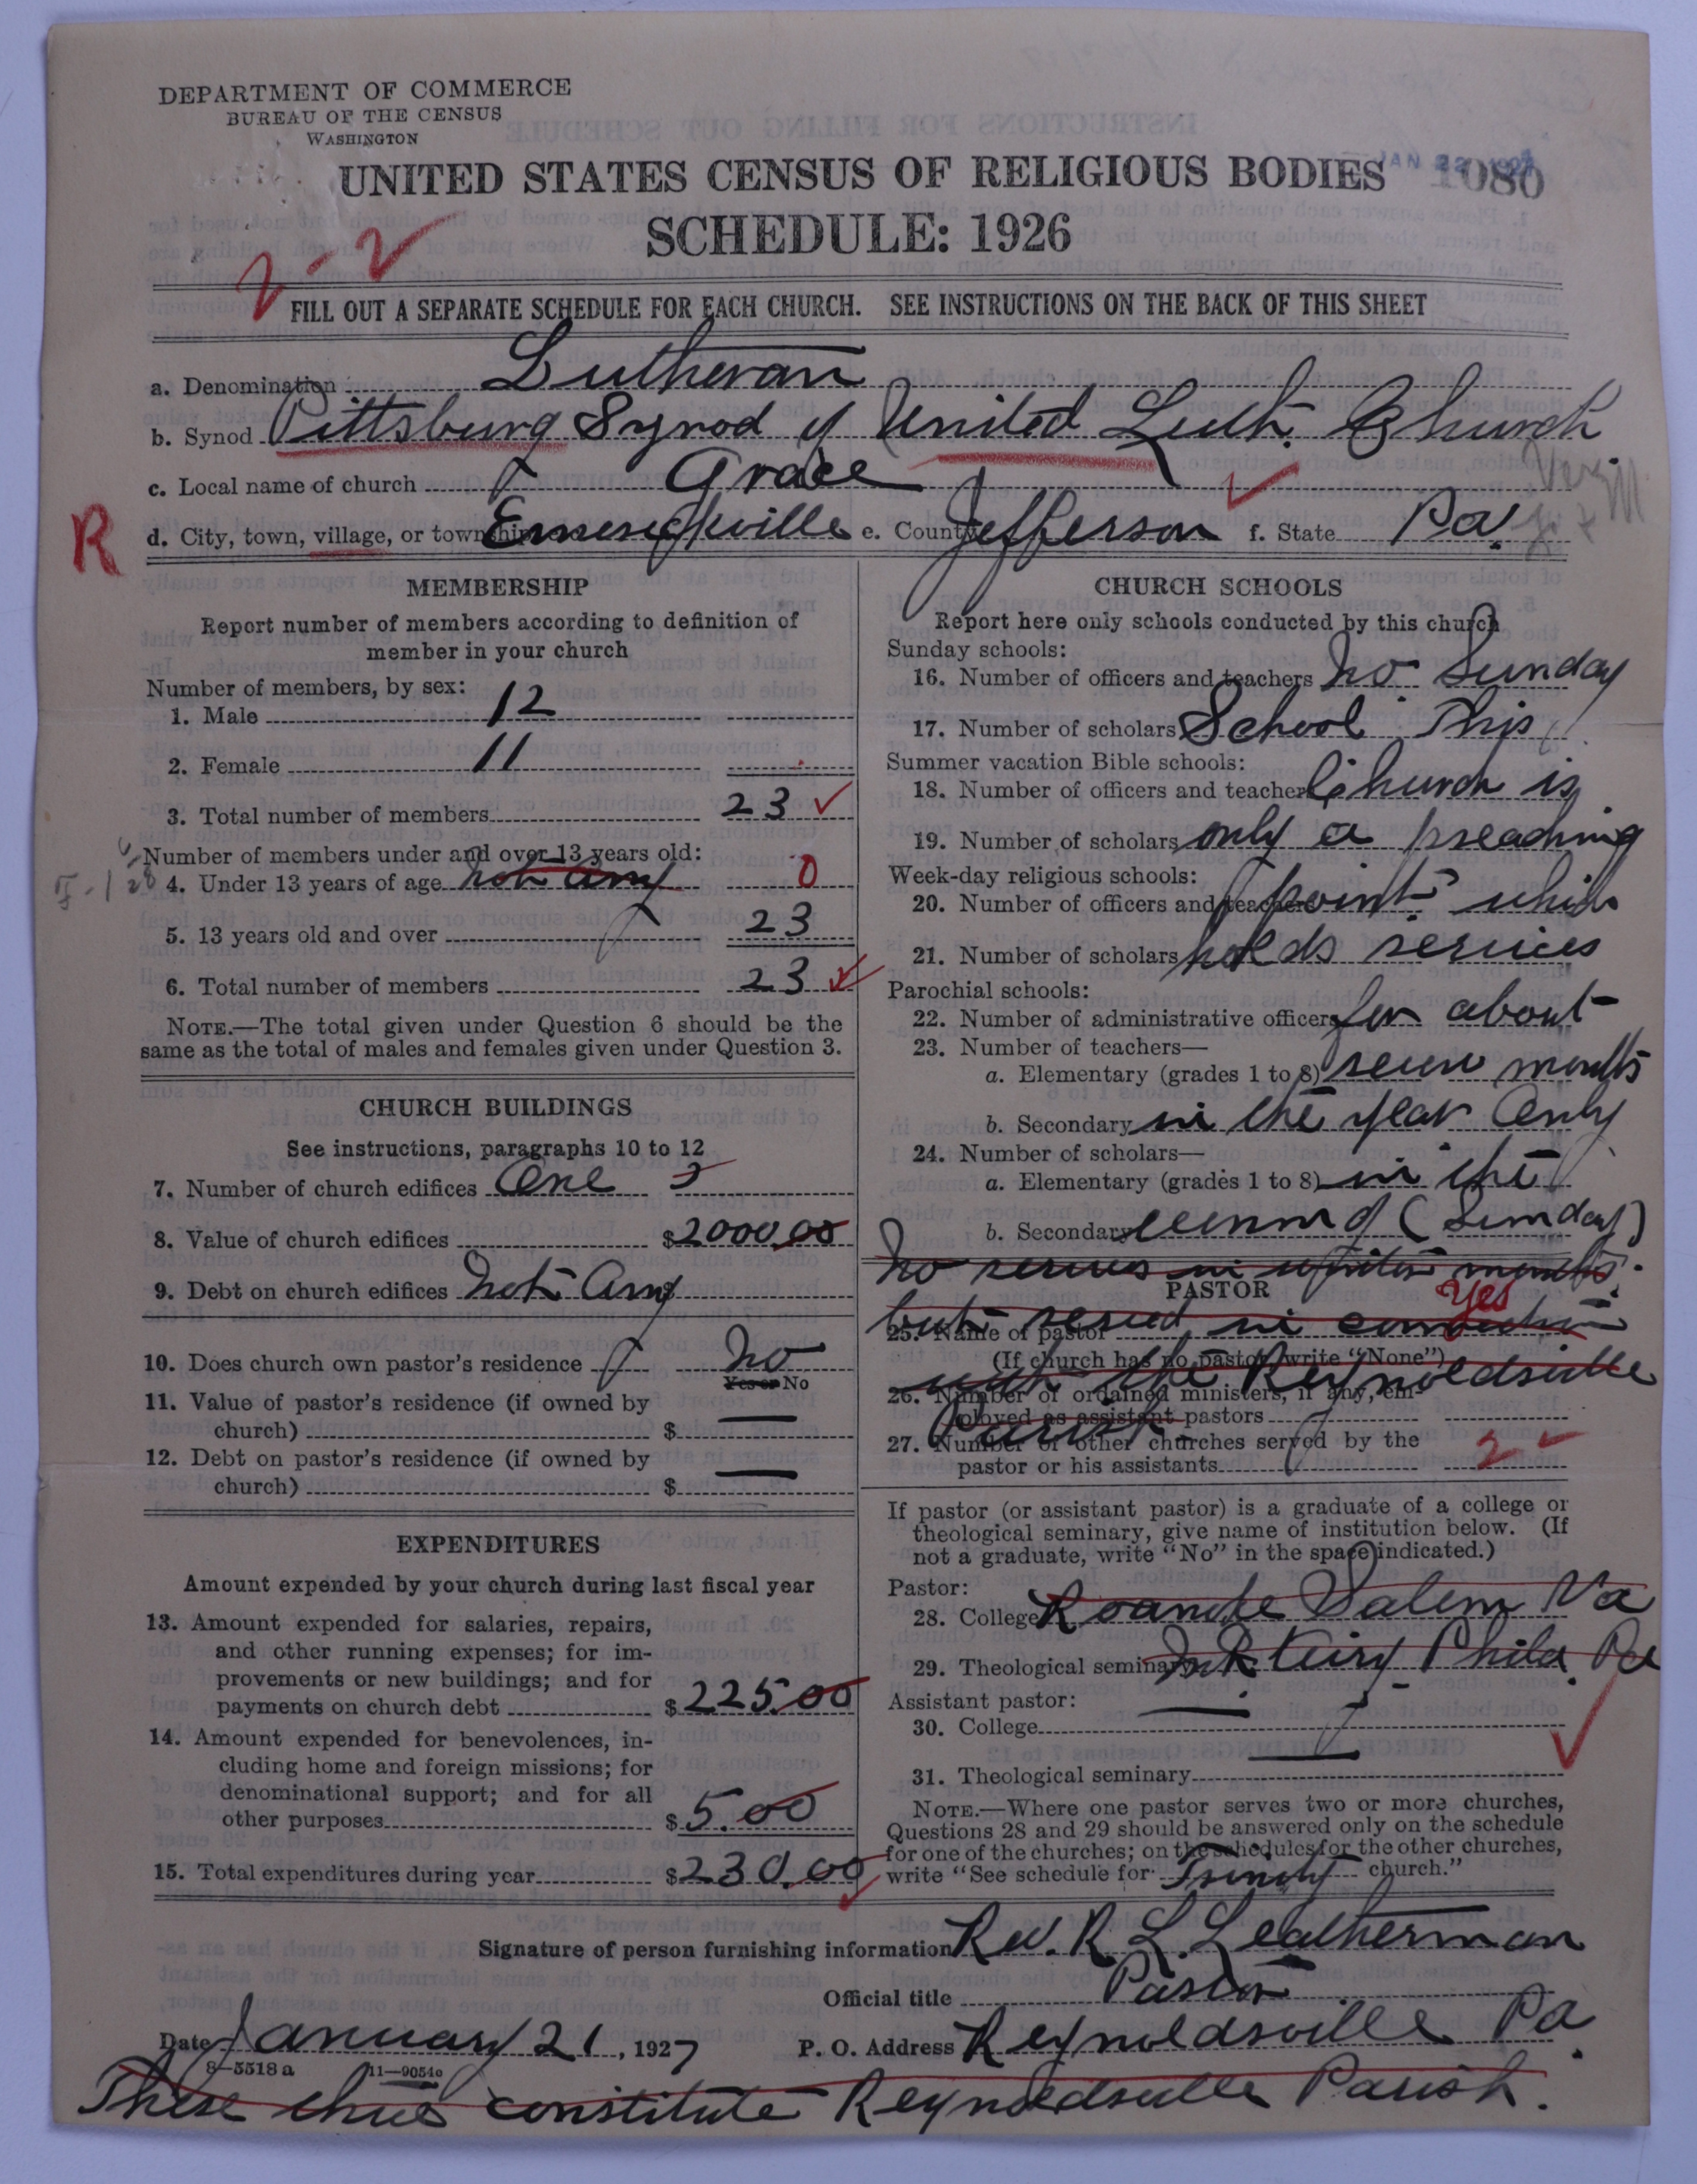 DEPARTMENT OF COMMERCE
BUREAU OF THE CENSUS
WASHINGTON
UNITED STATES CENSUS OF RELIGIOUS BODIES
JAN 22 1927 1080
SCHEDULE: 1926
2-2
FILL OUT A SEPARATE SCHEDULE FOR EACH CHURCH. SEE INSTRUCTIONS ON THE BACK OF THIS SHEET
a. Denomination Lutheran
b. Synod Pittsburg Synod of United Luth. Church
c. Local name of church Grace
R d. City, town, village, or township Emerickville e. County Jefferson f. State Pa.
MEMBERSHIP
Report number of members according to definition of
member in your church
Number of members, by sex:
1. Male 12
2. Female 11
3. Total number of members 23
Number of members under and over 13 years old:
4. Under 13 years of age not any 0
5. 13 years old and over 23
6. Total number of members 23
NOTE.—The total given under Question 6 should be the
same as the total of males and females given under Question 3.
CHURCH BUILDINGS
See instructions, paragraphs 10 to 12
7. Number of church edifices One
8. Value of church edifices $2000.00
9. Debt on church edifices Not Any
10. Does church own pastor's residence No
Yes or No
11. Value of pastor's residence (if owned by
church) $ —
12. Debt on pastor's residence (if owned by
church) $ —
EXPENDITURES
Amount expended by your church during last fiscal year
13. Amount expended for salaries, repairs,
and other running expenses; for im-
provements or new buildings; and for
payments on church debt $225.00
14. Amount expended for benevolences, in-
cluding home and foreign missions; for
denominational support; and for all
other purposes $5.00
15. Total expenditures during year $230.00
CHURCH SCHOOLS
Report here only schools conducted by this church
Sunday schools:
16. Number of officers and teachers No Sunday
17. Number of scholars School This
Summer vacation Bible schools:
18. Number of officers and teachers Church is
19. Number of scholars only a preaching
Week-day religious schools:
20. Number of officers and teachers point which
21. Number of scholars holds services
Parochial schools:
22. Number of administrative officers for about
23. Number of teachers—
a. Elementary (grades 1 to 8) seven months
b. Secondary in the year Only
24. Number of scholars—
a. Elementary (grades 1 to 8) in the
b. Secondary evening (Sunday)
No services in winter months.
PASTOR
Yes
but served in connection
25. Name of pastor
(If church has no pastor, write "None")
with the Reynoldsville
26. Number of ordained ministers, if any, em-
ployed as assistant pastors
Parish
27. Number of other churches served by the
pastor or his assistants 2
If pastor (or assistant pastor) is a graduate of a college or
theological seminary, give name of institution below. (If
not a graduate, write "No" in the space indicated.)
Pastor:
28. College Roanoke Salem Va
29. Theological seminary Mt. Airy Phila. Pa
Assistant pastor:
30. College —
31. Theological seminary —
NOTE.—Where one pastor serves two or more churches,
Questions 28 and 29 should be answered only on the schedule
for one of the churches; on the schedules for the other churches,
write "See schedule for Trinity church."
Signature of person furnishing information Rev. R. L. Leatherman
Official title Pastor
Date January 21, 1927 P. O. Address Reynoldsville Pa.
8—5518 a 11—9054a
These three constitute Reynoldsville Parish.